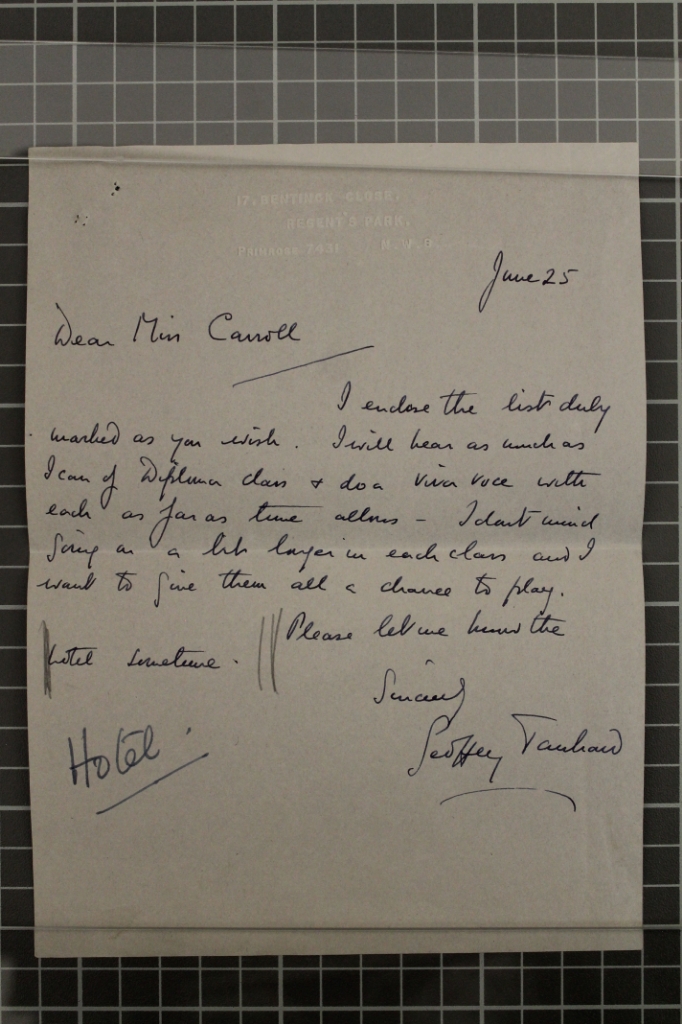 17, BENTINCK CLOSE,
REGENT'S PARK,
PRIMROSE 7431 N.W.8
June 25
Dear Miss Carroll
I enclose the list duly
marked as you wish. I will hear as much as
I can of Diploma class + do a viva voce with
each as far as time allows – I don't mind
going on a bit longer in each class and I
want to give them all a chance to play.
Please let me know the
hotel sometime.
Sincerely
Geoffrey Tankard
Hotel.